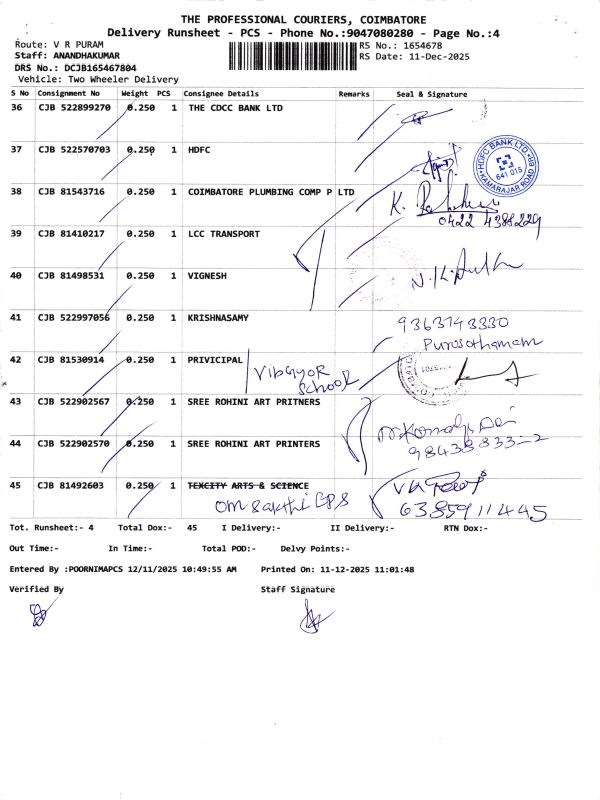 THE PROFESSIONAL COURIERS, COIMBATORE
Delivery Runsheet - PCS - Phone No.:9047080280 - Page No.:4
Route: V R PURAM
RS No.: 1654678
Staff: ANANDHAKUMAR
RS Date: 11-Dec-2025
DRS No.: DCJB165467804
Vehicle: Two Wheeler Delivery
S No Consignment No Weight PCS Consignee Details Remarks Seal & Signature
36 CJB 522899270 0.250 1 THE CDCC BANK LTD
37 CJB 522570703 0.250 1 HDFC
HDFC BANK LTD.
641 015
KAMARAJAR ROAD BR
38 CJB 81543716 0.250 1 COIMBATORE PLUMBING COMP P LTD
K.
0422 4388229
39 CJB 81410217 0.250 1 LCC TRANSPORT
40 CJB 81498531 0.250 1 VIGNESH
41 CJB 522997056 0.250 1 KRISHNASAMY
9363743330
Purusothamam
42 CJB 81530914 0.250 1 PRIVICIPAL
VIBGYOR
School
43 CJB 522902567 0.250 1 SREE ROHINI ART PRITNERS
44 CJB 522902570 0.250 1 SREE ROHINI ART PRINTERS
45 CJB 81492603 0.250 1 TEXCITY ARTS & SCIENCE
Om Sakthi EPS
6385911445
Tot. Runsheet:- 4 Total Dox:- 45 I Delivery:- II Delivery:- RTN Dox:-
Out Time:- In Time:- Total POD:- Delvy Points:-
Entered By :POORNIMAPCS 12/11/2025 10:49:55 AM Printed On: 11-12-2025 11:01:48
Verified By Staff Signature